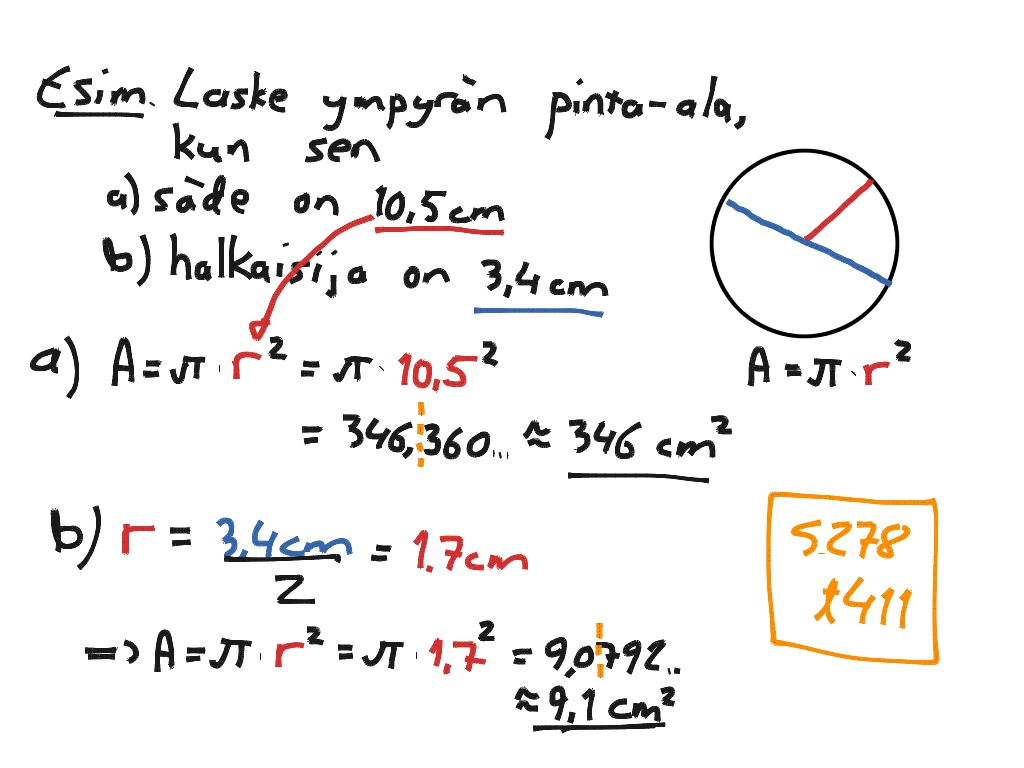 Esim. Laske ympyrän pinta-ala,
kun sen
a) säde on 10,5 cm
b) halkaisija on 3,4 cm
a) A = π · r² = π · 10,5²
= 346,360... ≈ 346 cm²
A = π · r²
b) r = 3,4cm / 2 = 1,7cm
=> A = π · r² = π · 1,7² = 9,0792..
≈ 9,1 cm²
S.278
t411